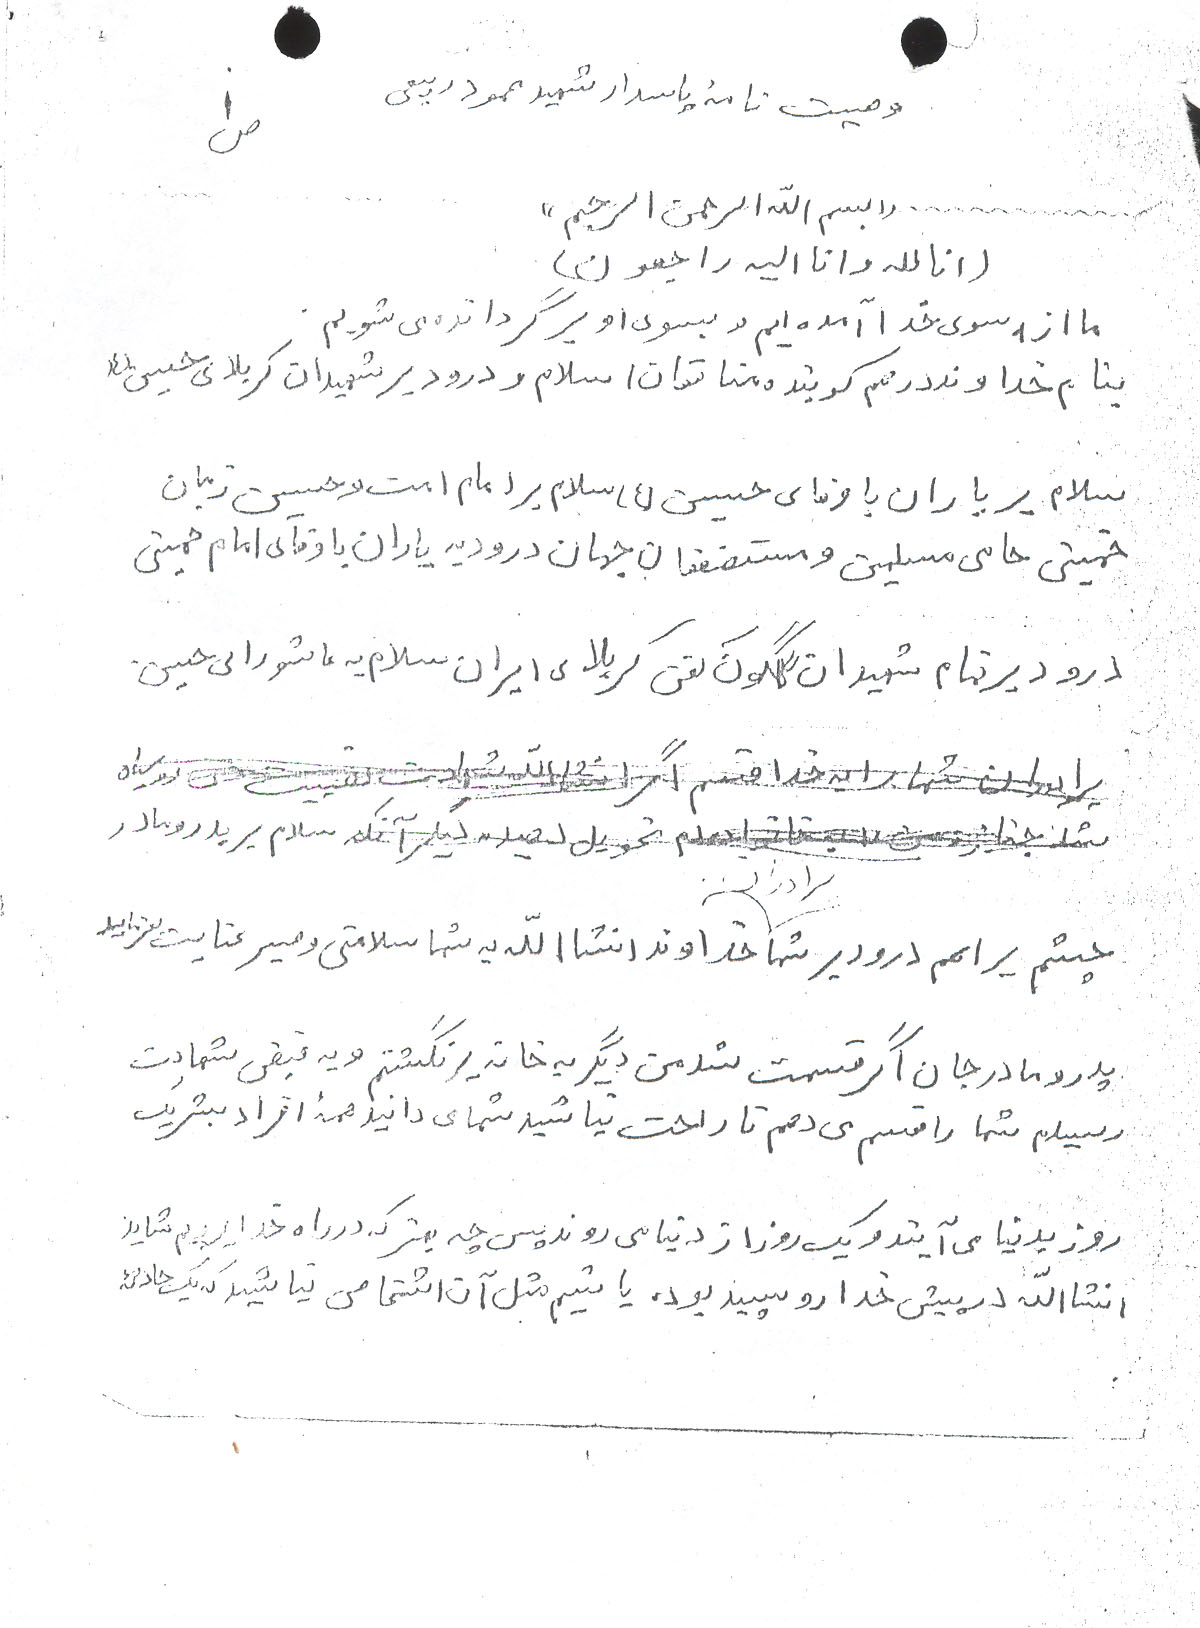 وصیت نامهٔ پاسدار شهید محمود ربیعی
ص ۱
«بسم الله الرحمن الرحیم»
(انا لله و انا الیه راجعون)
ما از سوی خدا آمده ایم و بسوی او برگردانده می شویم.
بنام خداوند درهم کوبنده منافقان اسلام و درود بر شهیدان کربلای حسینی
سلام بر یاران باوفای حسین (ع) سلام بر امام امت و حسین زمان
خمینی حامی مسلمین و مستضعفان جهان درود به یاران باوفای امام خمینی
درود بر تمام شهیدان گلگون کفن کربلای ایران سلام به عاشورای حسین.
برادران شما را به خدا قسم اگر انشاالله شهادت
تحویل دهید دیگر آنکه سلام بر پدر و مادر
برادران
چشم براهم درود بر شما خداوند انشاالله به شما سلامتی و صبر عنایت بفرمایید
پدر و مادر جان اگر قسمت شد من دیگر به خانه برنگشتم و به فیض شهادت
رسیدم شما را قسم می دهم نا راحت نباشید شما می دانید همهٔ افراد بشر یک
روز بدنیا می آیند و یک روز از دنیا می روند پس چه بهتر که در راه خدا برویم شاید
انشاالله در پیش خدا رو سپید بوده باشیم مثل آن اشخاصی نباشید که یک حادثهٔ